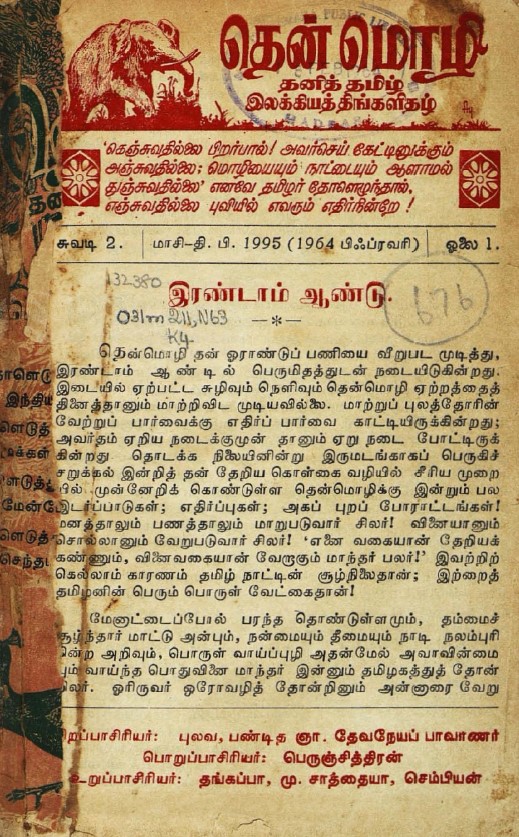 தென் மொழி
தனித் தமிழ்
இலக்கியத்திங்களிதழ்
'கெஞ்சுவதில்லை பிறர்பால்! அவர்செய் கேட்டினுக்கும்
அஞ்சுவதில்லை; மொழியையும் நாட்டையும் ஆளாமல்
துஞ்சுவதில்லை' எனவே தமிழர் தோளெழுந்தால்,
எஞ்சுவதில்லை புவியில் எவரும் எதிர்நின்றே !
சுவடி 2. மாசி-தி. பி. 1995 (1964 பிஃப்ரவரி) ஓலை 1.
132380
இரண்டாம் ஆண்டு.
031m211,N63
K4
676
தென்மொழி தன் ஓராண்டுப் பணியை வீறுபட முடித்து,
இரண்டாம் ஆண்டில் பெருமிதத்துடன் நடையிடுகின்றது.
இடையில் ஏற்பட்ட சுழிவும் நெளிவும் தென்மொழி ஏற்றத்தைத்
தினைத்தானும் மாற்றிவிட முடியவில்லை. மாற்றுப் புலத்தோரின்
வேற்றுப் பார்வைக்கு எதிர்ப் பார்வை காட்டியிருக்கின்றது;
அவர்தம் ஏறிய நடைக்குமுன் தானும் ஏறு நடை போட்டிருக்
கின்றது தொடக்க நிலையினின்று இருமடங்காகப் பெருகிச்
சறுக்கல் இன்றித் தன் தேறிய கொள்கை வழியில் சீரிய முறை
யில் முன்னேறிக் கொண்டுள்ள தென்மொழிக்கு இன்றும் பல
இடர்ப்பாடுகள்; எதிர்ப்புகள்; அகப் புறப் போராட்டங்கள்!
மனத்தாலும் பணத்தாலும் மாறுபடுவார் சிலர்! வினையானும்
சொல்லானும் வேறுபடுவார் சிலர்! 'எனை வகையான் தேறியக்
கண்ணும், வினைவகையான் வேறாகும் மாந்தர் பலர்!' இவற்றிற்
கெல்லாம் காரணம் தமிழ் நாட்டின் சூழ்நிலைதான்; இற்றைத்
தமிழனின் பெரும் பொருள் வேட்கைதான்!
மேனாட்டைப்போல் பரந்த தொண்டுள்ளமும், தம்மைச்
சூழ்ந்தார் மாட்டு அன்பும், நன்மையும் தீமையும் நாடி நலம்புரி
கின்ற அறிவும், பொருள் வாய்ப்புழி அதன்மேல் அவாவின்மை
யும் வாய்ந்த பொதுவினை மாந்தர் இன்னும் தமிழகத்துத் தோன்
றிலர். ஓரிருவர் ஒரோவழித் தோன்றினும் அன்னாரை வேறு
சிறப்பாசிரியர்: புலவ, பண்டித ஞா. தேவநேயப் பாவாணர்
பொறுப்பாசிரியர்: பெருஞ்சித்திரன்
உறுப்பாசிரியர்: தங்கப்பா, மு. சாத்தையா, செம்பியன்